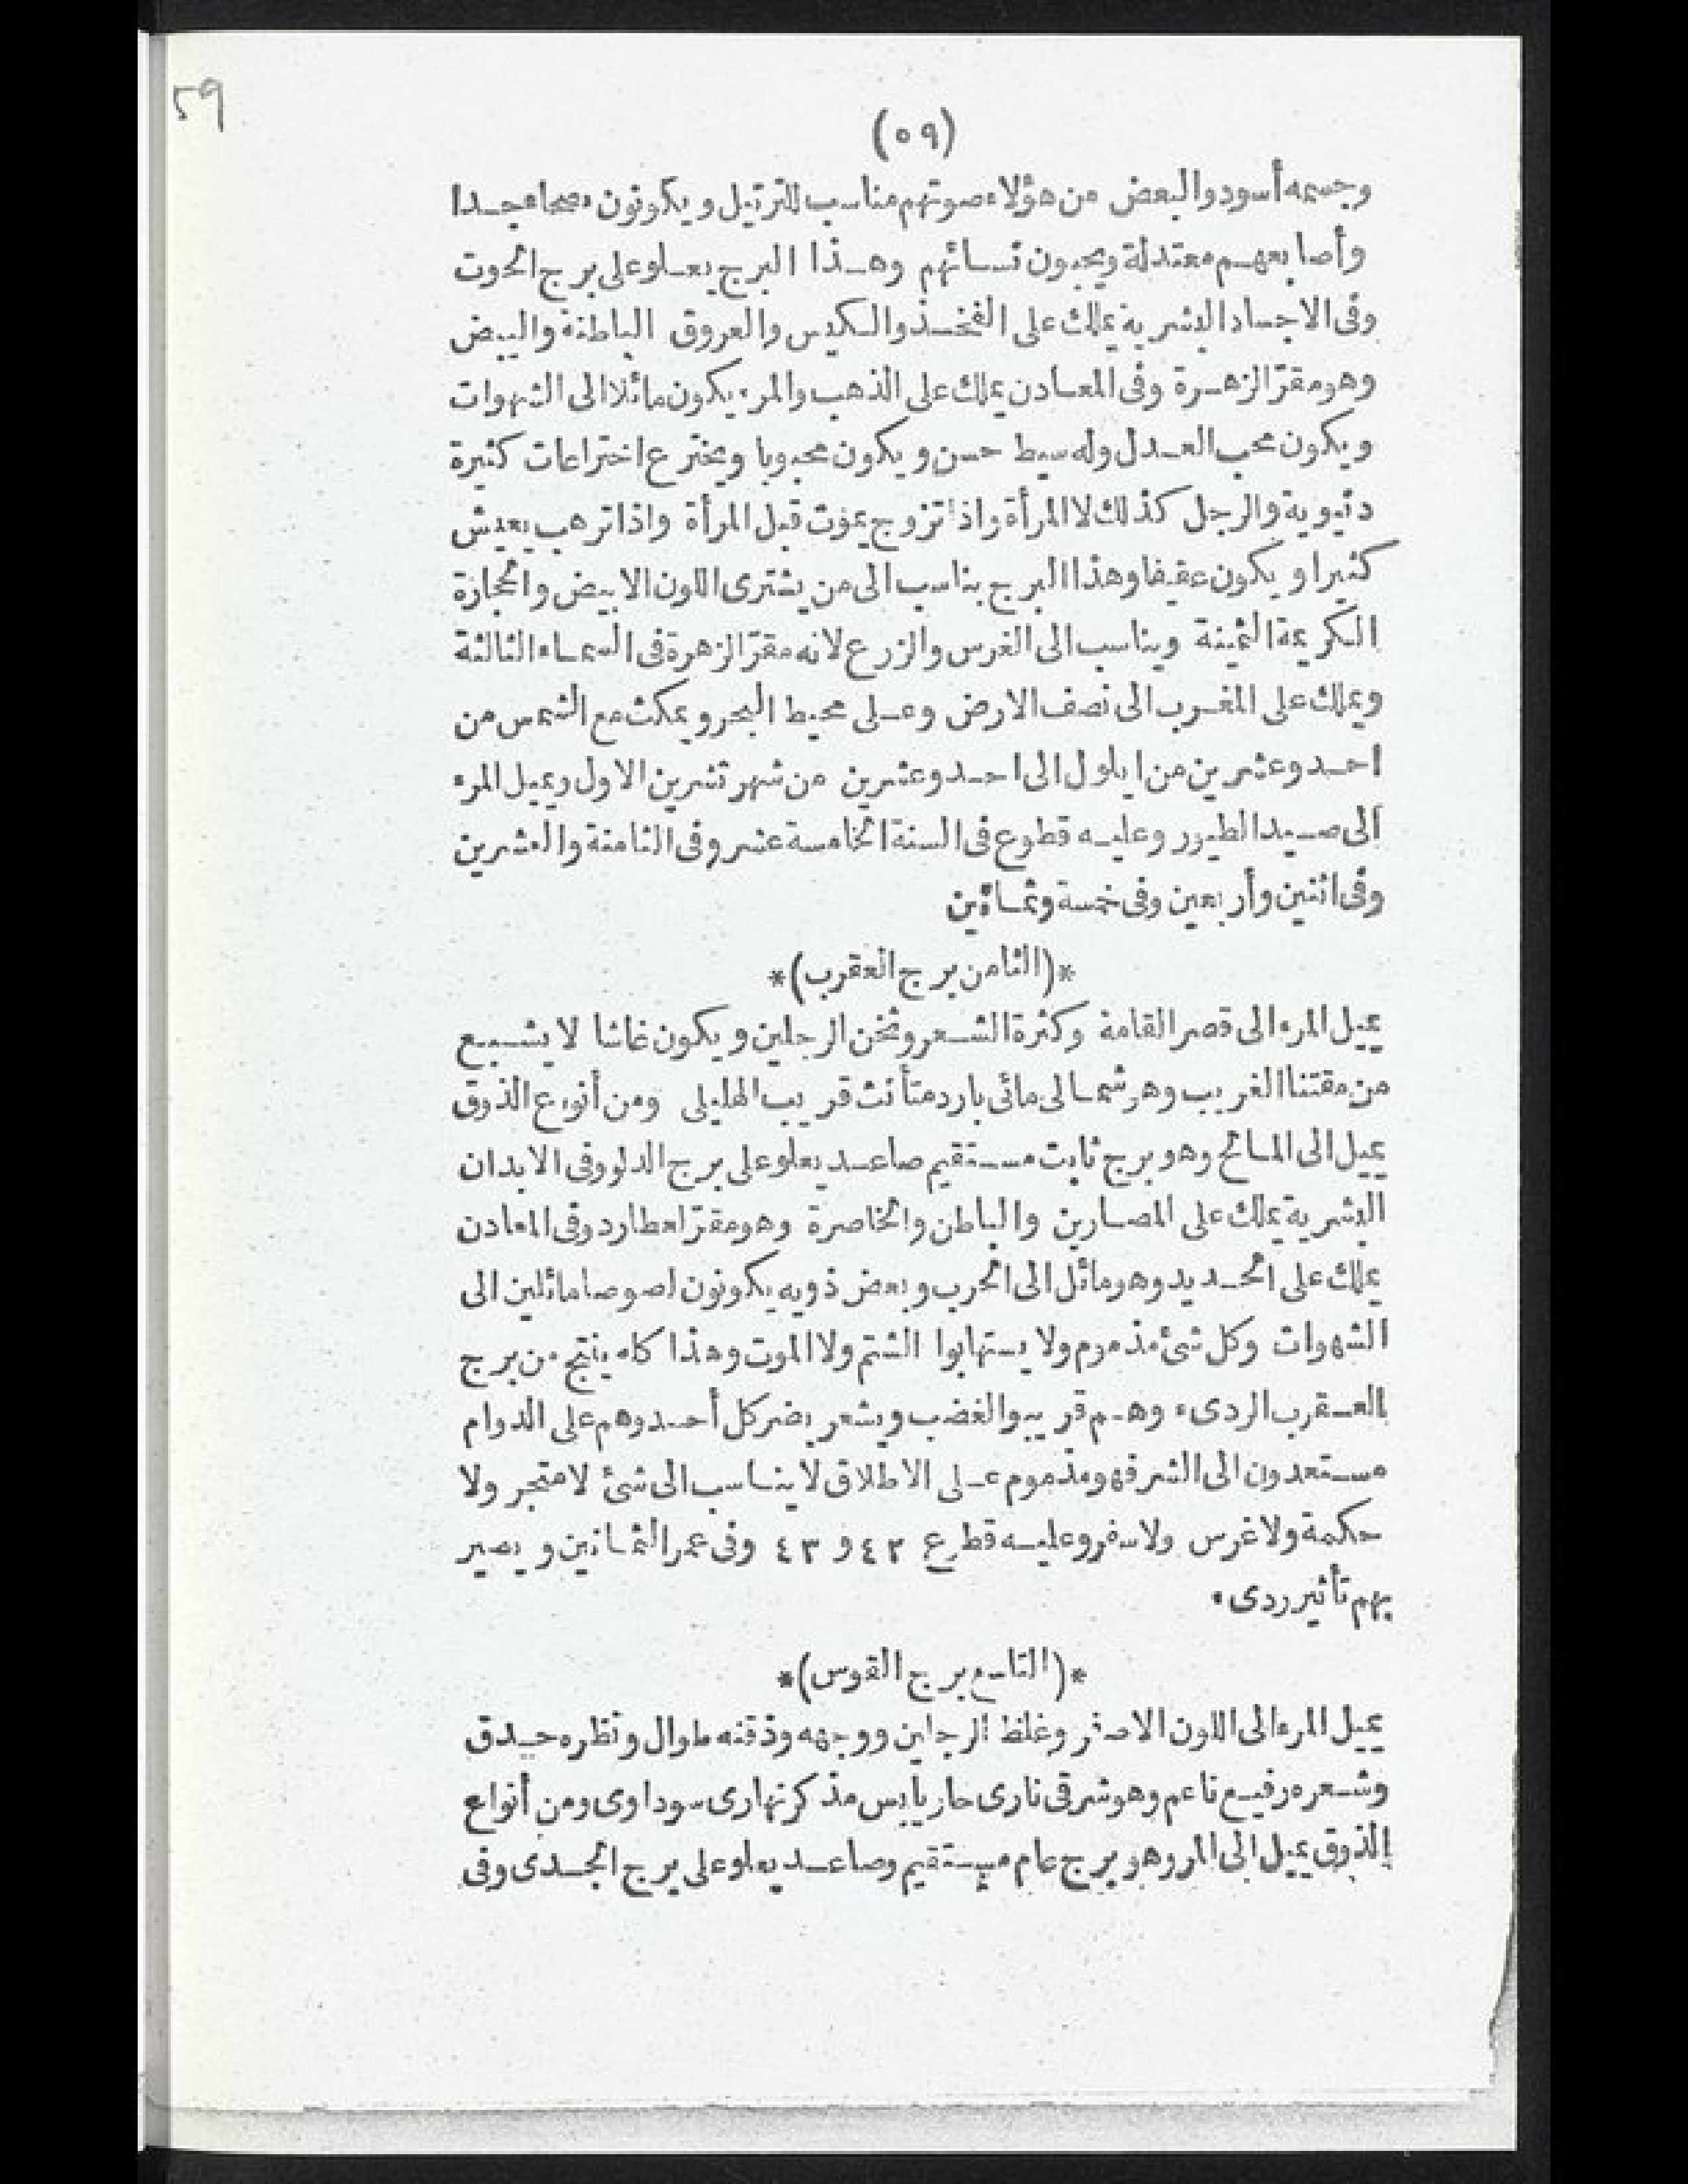 59
(٥٩)
وجسمه أسود والبعض من هؤلاء صوتهم مناسب للترتيل ويكونون فصحاء جدا
وأصابعهم معتدلة ويحبون نسائهم وهذا البرج يعلو على برج الحوت
وفى الاجساد البشرية يملك على الفخذ والكيس والعروق الباطنة والبيض
وهو مقرّ الزهرة وفى المعادن يملك على الذهب والمرء يكون مائلا الى الشهوات
ويكون محب العدل وله سيط حسن ويكون محبوبا ويخترع اختراعات كثيرة
دنيوية والرجل كذلك لا المرأة واذا تزوج يموت قبل المرأة واذا ترهب يعيش
كثيرا ويكون عفيفا وهذا البرج يناسب الى من يشترى اللون الابيض والحجارة
الكريمة الثمينة ويناسب الى الغرس والزرع لانه مقرّ الزهرة فى السماء الثالثة
ويملك على المغرب الى نصف الارض وعلى محيط البحر ويمكث مع الشمس من
احد وعشرين من ايلول الى احد وعشرين من شهر تشرين الاول ويميل المرء
الى صيد الطيور وعليه قطوع فى السنة الخامسة عشر وفى الثامنة والعشرين
وفى اثنين وأربعين وفى خمسة وثمانين
*(الثامن برج العقرب)*
يميل المرء الى قصر القامة وكثرة الشعر وثخن الرجلين ويكون غاشا لا يشبع
من مقتنا الغريب وهو شمالى مائى بارد متأنث قريب الهليلى ومن أنواع الذوق
يميل الى المالح وهو برج ثابت مستقيم صاعد يعلو على برج الدلو وفى الابدان
البشرية يملك على المصارين والباطن والخاصرة وهو مقرّ لعطارد وفى المعادن
يملك على الحديد وهو مائل الى الحرب وبعض ذويه يكونون لصوصا مائلين الى
الشهوات وكل شئ مذموم ولا يستهابوا الشتم ولا الموت وهذا كله ينتج من برج
العقرب الردىء وهم قريبو الغضب ويشعر بضر كل أحد وهم على الدوام
مستعدون الى الشر فهو مذموم على الاطلاق لا يناسب الى شئ لا متجر ولا
حكمة ولا غرس ولا سفر وعليه قطوع ٤٢ و ٤٣ وفى عمر الثمانين ويصير
بهم تأثير ردىء
*(التاسع برج القوس)*
يميل المرء الى اللون الاصفر وغلظ الرجلين ووجهه وذقنه طوال ونظره حيدق
وشعره رفيع ناعم وهو شرقى نارى حار يابس مذكر نهارى سوداوى ومن أنواع
الذوق يميل الى المر وهو برج عام مستقيم وصاعد يعلو على برج الجدى وفى